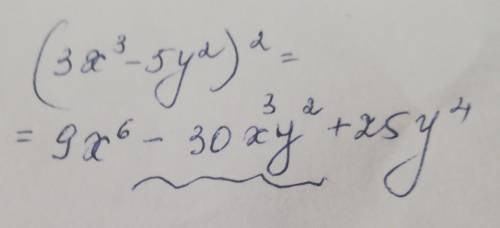 (3x³-5y²)²=
= 9x⁶ - 30x³y² + 25y⁴